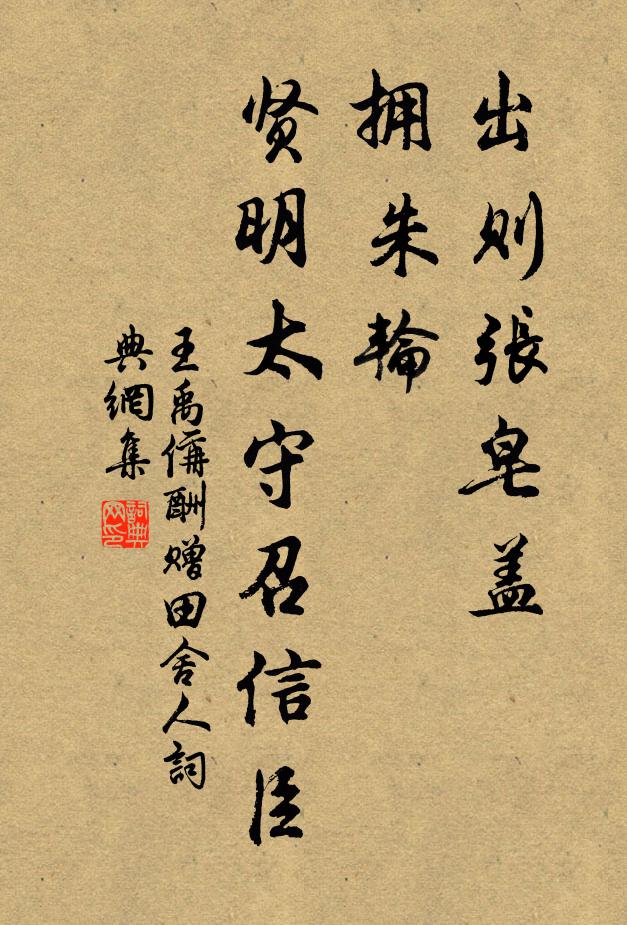 出则張皂盖
拥朱輪
贤明太守召信臣
王禹偁酬赠田舍人詞
典網集
詞典
网印